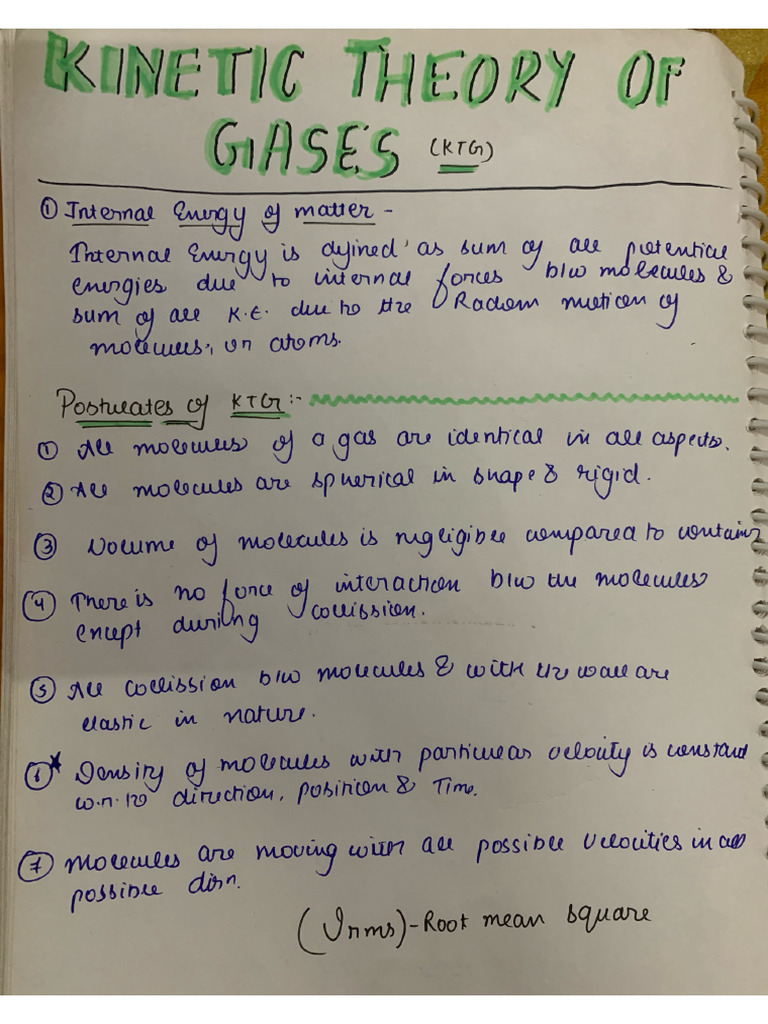 KINETIC THEORY OF
GASES (KTG)
① Internal Energy of matter -
Internal Energy is defined as sum of all potential
energies due to internal forces b/w molecules &
sum of all K.E. due to the Random motion of
molecules, or atoms.
Postulates of KTG :-
① All molecules of a gas are identical in all aspects.
② All molecules are spherical in shape & rigid.
③ Volume of molecules is negligible compared to container
④ There is no force of interaction b/w the molecules
except during collission.
⑤ All collission b/w molecules & with the wall are
elastic in nature.
⑥* Density of molecules with particular velocity is constant
w.r.to direction, position & Time.
⑦ Molecules are moving with all possible velocities in all
possible dirn.
(Vrms) - Root mean square